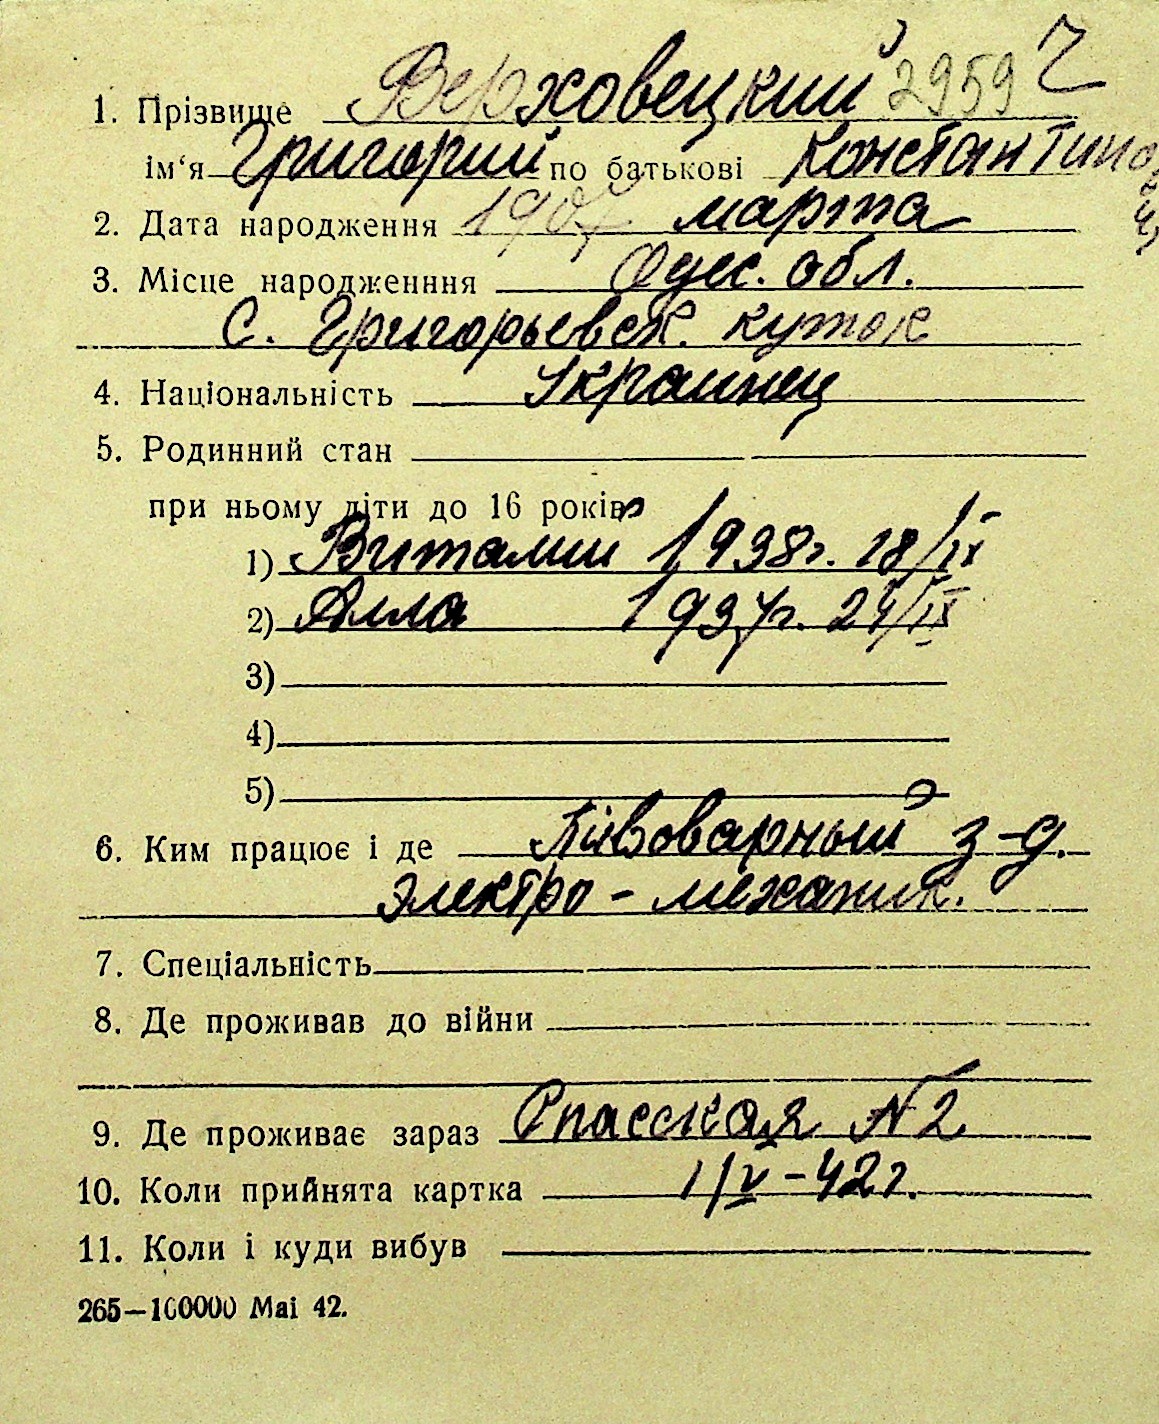 1. Прізвище Верховецкий 2959 Ч
ім'я Григорий по батькові Константинович
2. Дата народження 1907 марта
3. Місце народженння Одес. обл.
с. Григорьевск. куток
4. Національність Украинец
5. Родинний стан
при ньому діти до 16 років
1) Виталий 1938г. 18/IX
2) Алла 1937г. 24/IX
3)
4)
5)
6. Ким працює і де Пивоварный з-д.
электро-механик.
7. Спеціальність
8. Де проживав до війни
9. Де проживає зараз Спасская N 2
10. Коли прийнята картка 1/V-42 г.
11. Коли і куди вибув
265—100000 Mai 42.